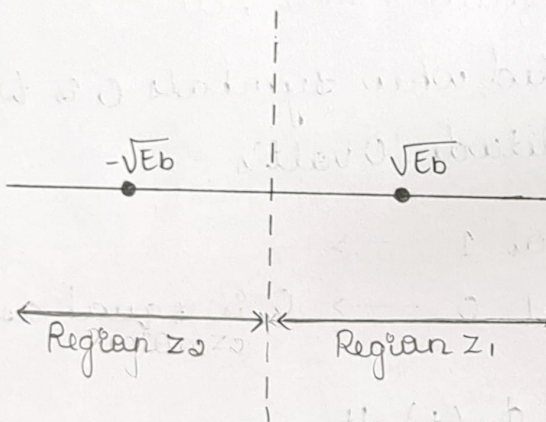 -√Eb √Eb
Region Z2 Region Z1